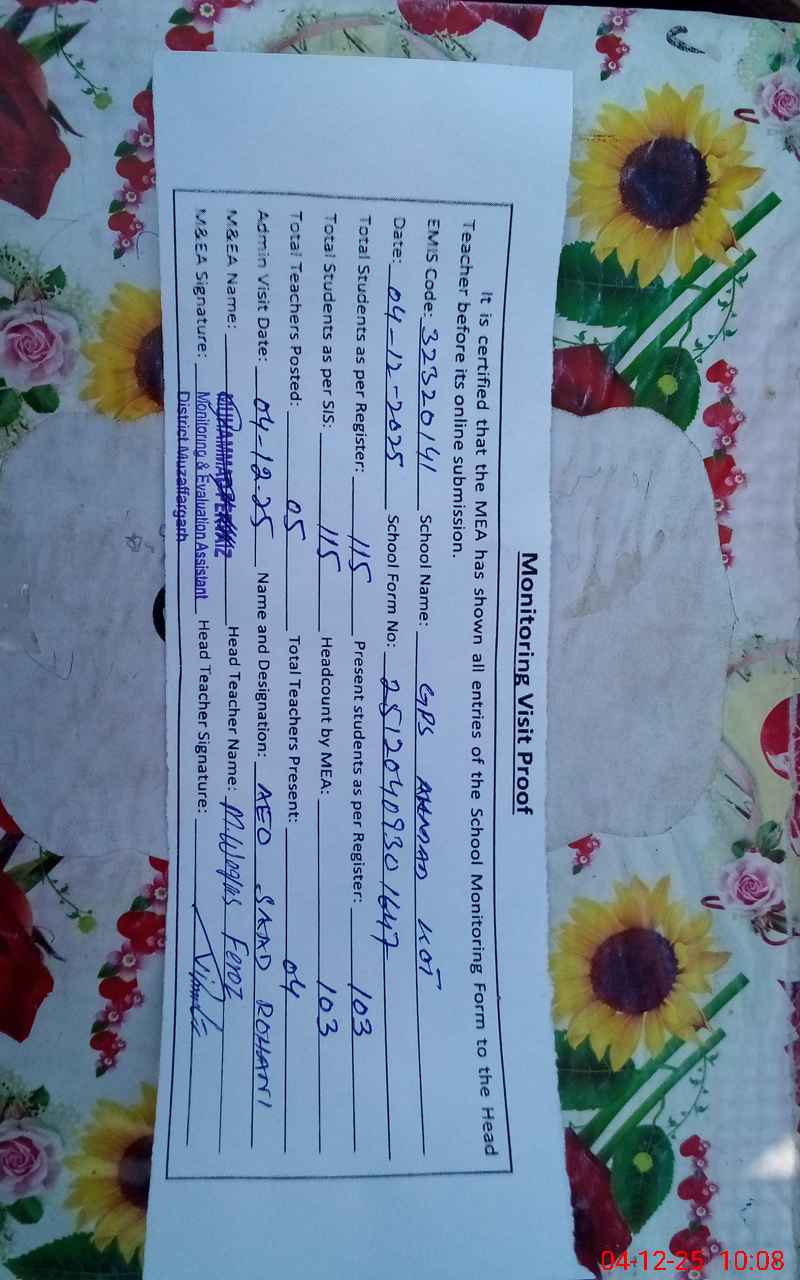 Monitoring Visit Proof
It is certified that the MEA has shown all entries of the School Monitoring Form to the Head
Teacher before its online submission.
EMIS Code: 32320141 School Name: GPS AHMAD KOT
Date: 04-12-2025 School Form No: 25120409301647
Total Students as per Register: 115 Present students as per Register: 103
Total Students as per SIS: 115 Headcount by MEA: 103
Total Teachers Posted: 05 Total Teachers Present: 04
Admin Visit Date: 04-12-25 Name and Designation: AEO SAAD ROHANI
M&EA Name: MUHAMMAD PERVAIZ Head Teacher Name: M. Waqas Feroz
M&EA Signature: Monitoring & Evaluation Assistant Head Teacher Signature:
District Muzaffargarh
04-12-25 10:08